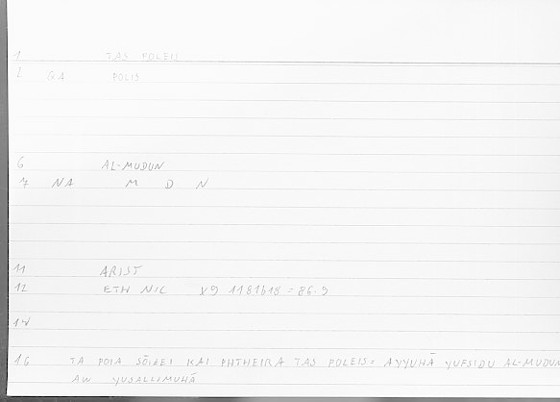 1 TAS POLEIS
2 GA POLIS
6 AL-MUDUN
7 NA M D N
11 ARIST
12 ETH NIC X9 1181b18 = 86.9
14
16 TA POIA SŌIZEI KAI PHTHEIREI TAS POLEIS = AYYUHĀ YUFSIDU AL-MUDUN
AW YUSALLIMUHĀ